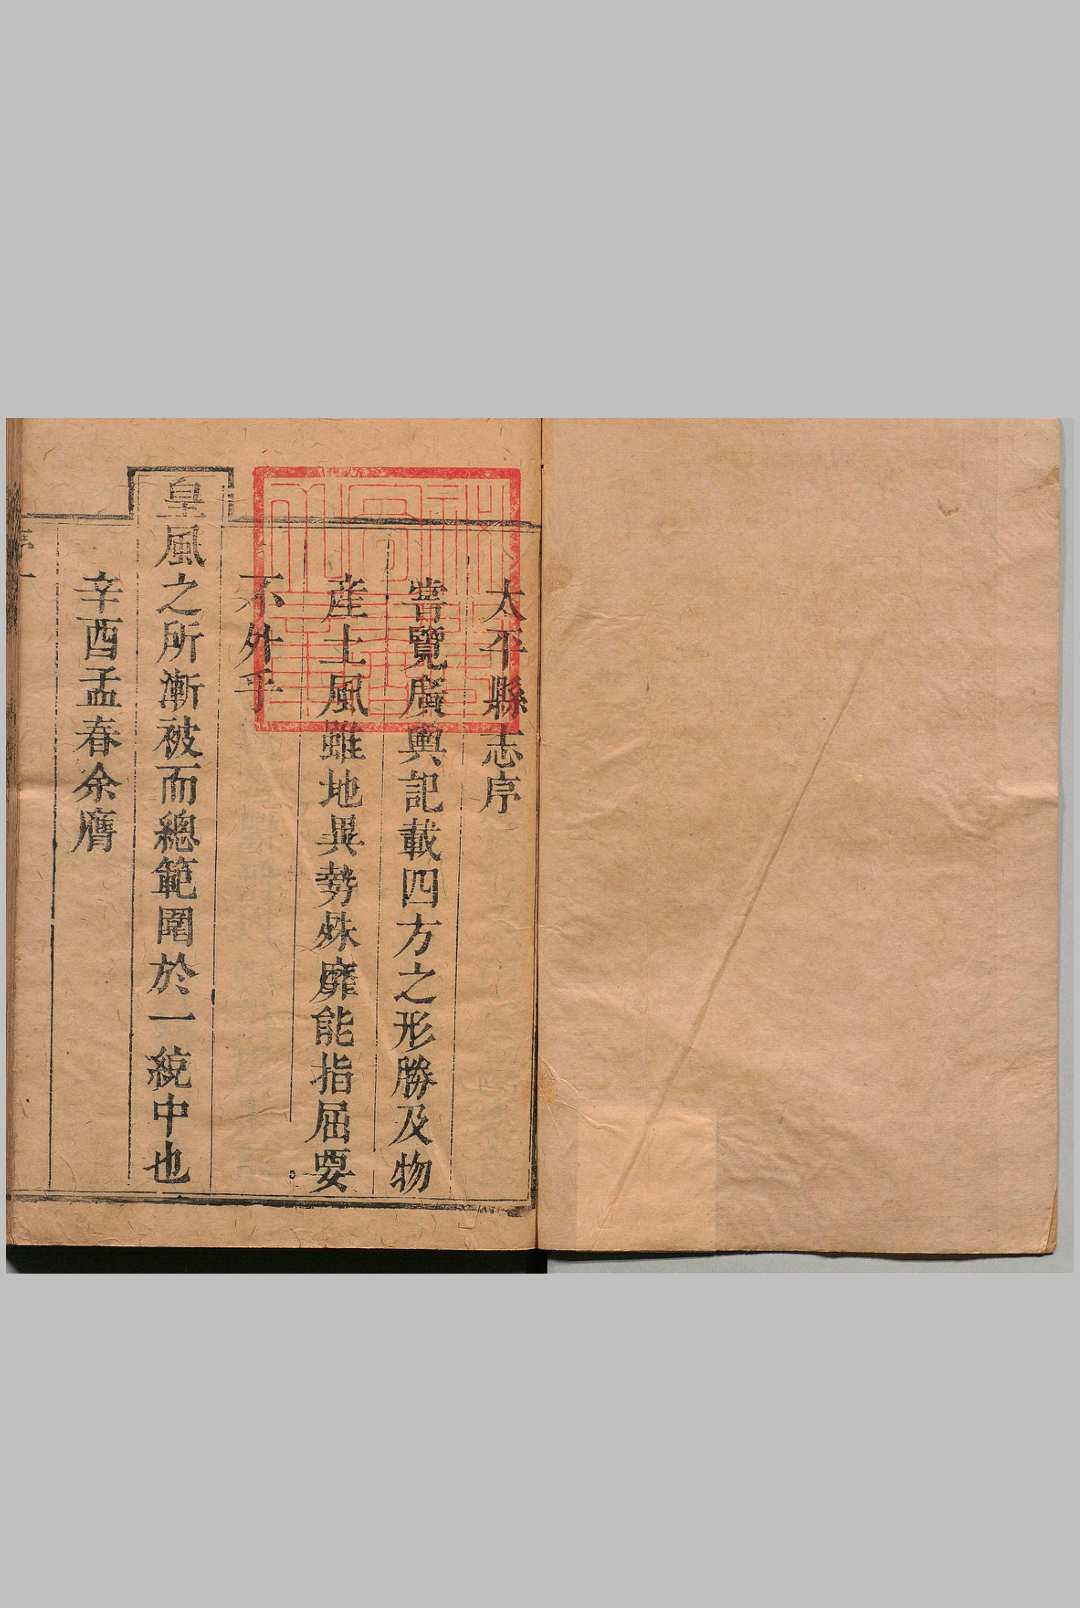 太平縣志序
甞覽廣輿記載四方之形勝及物
產土風雖地異勢殊靡能指屈要
不外乎
皇風之所漸被而總範圍於一統中也
辛酉孟春余膺